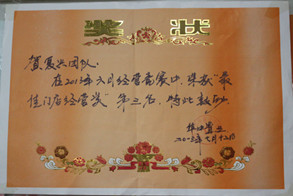 奖状
贺复兴团队：
在2013年六月经营赛展中 荣获“最
佳门店经营奖”第三名，特此鼓励
2013年7月12日